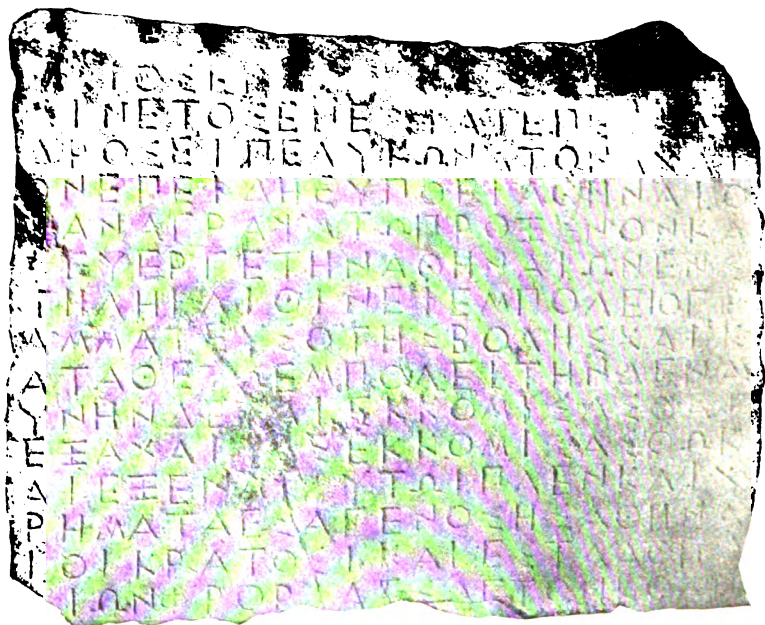 ΑΙΝΕΤΟΣΕΠΕΣΤΑΤΕΠΕ
ΔΡΟΣΕΙΠΕΛΥΚΩΝΑΤΟΝΑΧΑΙ
ΟΝΕΠΕΙΔΗΕΥΠΟΕΙΑΘΗΝΑΙΟ
ΣΑΝΑΓΡΑΨΑΤΩΠΡΟΞΕΝΟΝΚΑ
ΙΕΥΕΡΓΕΤΗΝΑΘΗΝΑΙΩΝΕΝΣ
ΤΗΛΗΙΛΙΘΙΝΗΙΕΜΠΟΛΕΙΟΓΡ
ΑΜΜΑΤΕΥΣΟΤΗΣΒΟΛΗΣΚΑΙΚ
ΑΤΑΘΕΤΩΕΜΠΟΛΕΙΤΗΝΔΕΝΑ
ΥΝΗΝΔΕΙΤΑΙΕΚΚΟΜΙΣΑΣΘΑΙ
ΕΞΑΧΑΙΙΑΣΕΚΚΟΜΙΣΑΣΘΩΚ
ΑΙΕΞΕΝΑΙΑΥΤΩΙΠΛΕΝΚΑΙΧ
ΡΗΜΑΤΑΕΣΑΓΕΝΟΣΗΣΑΘΗΝΑ
ΙΟΙΚΡΑΤΟΣΙΚΑΙΕΣΤΑ
ΙΩΝΦΡΟΡΙΑΕΣ